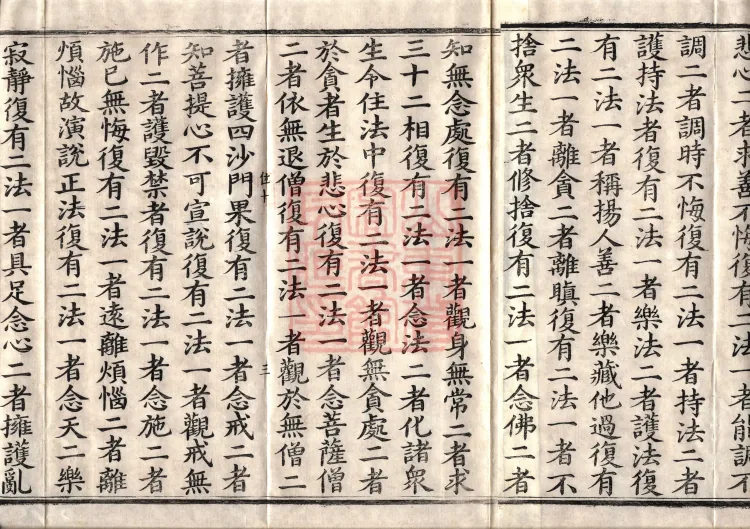 悲心二者求善不悔復有二法一者能調
調二者調時不悔復有二法一者持法二者
護持法者復有二法一者樂法二者護法復
有二法一者稱揚人善二者樂藏他過復有
二法一者離貪二者離瞋復有二法一者不
捨衆生二者修捨復有二法一者念佛二者
知無念處復有二法一者觀身無常二者求
三十二相復有二法一者念法二者化諸衆
生令住法中復有二法一者觀無貪處二者
於貪者生於悲心復有二法一者念菩薩僧
二者依無退僧復有二法一者觀於無僧二
者擁護四沙門果復有二法一者念戒二者
知菩提心不可宣說復有二法一者觀戒無
作二者護毀禁者復有二法一者念施二者
施已無悔復有二法一者遠離煩惱二者離
煩惱故演說正法復有二法一者念天二樂
寂靜復有二法一者具足念心二者擁護亂
三